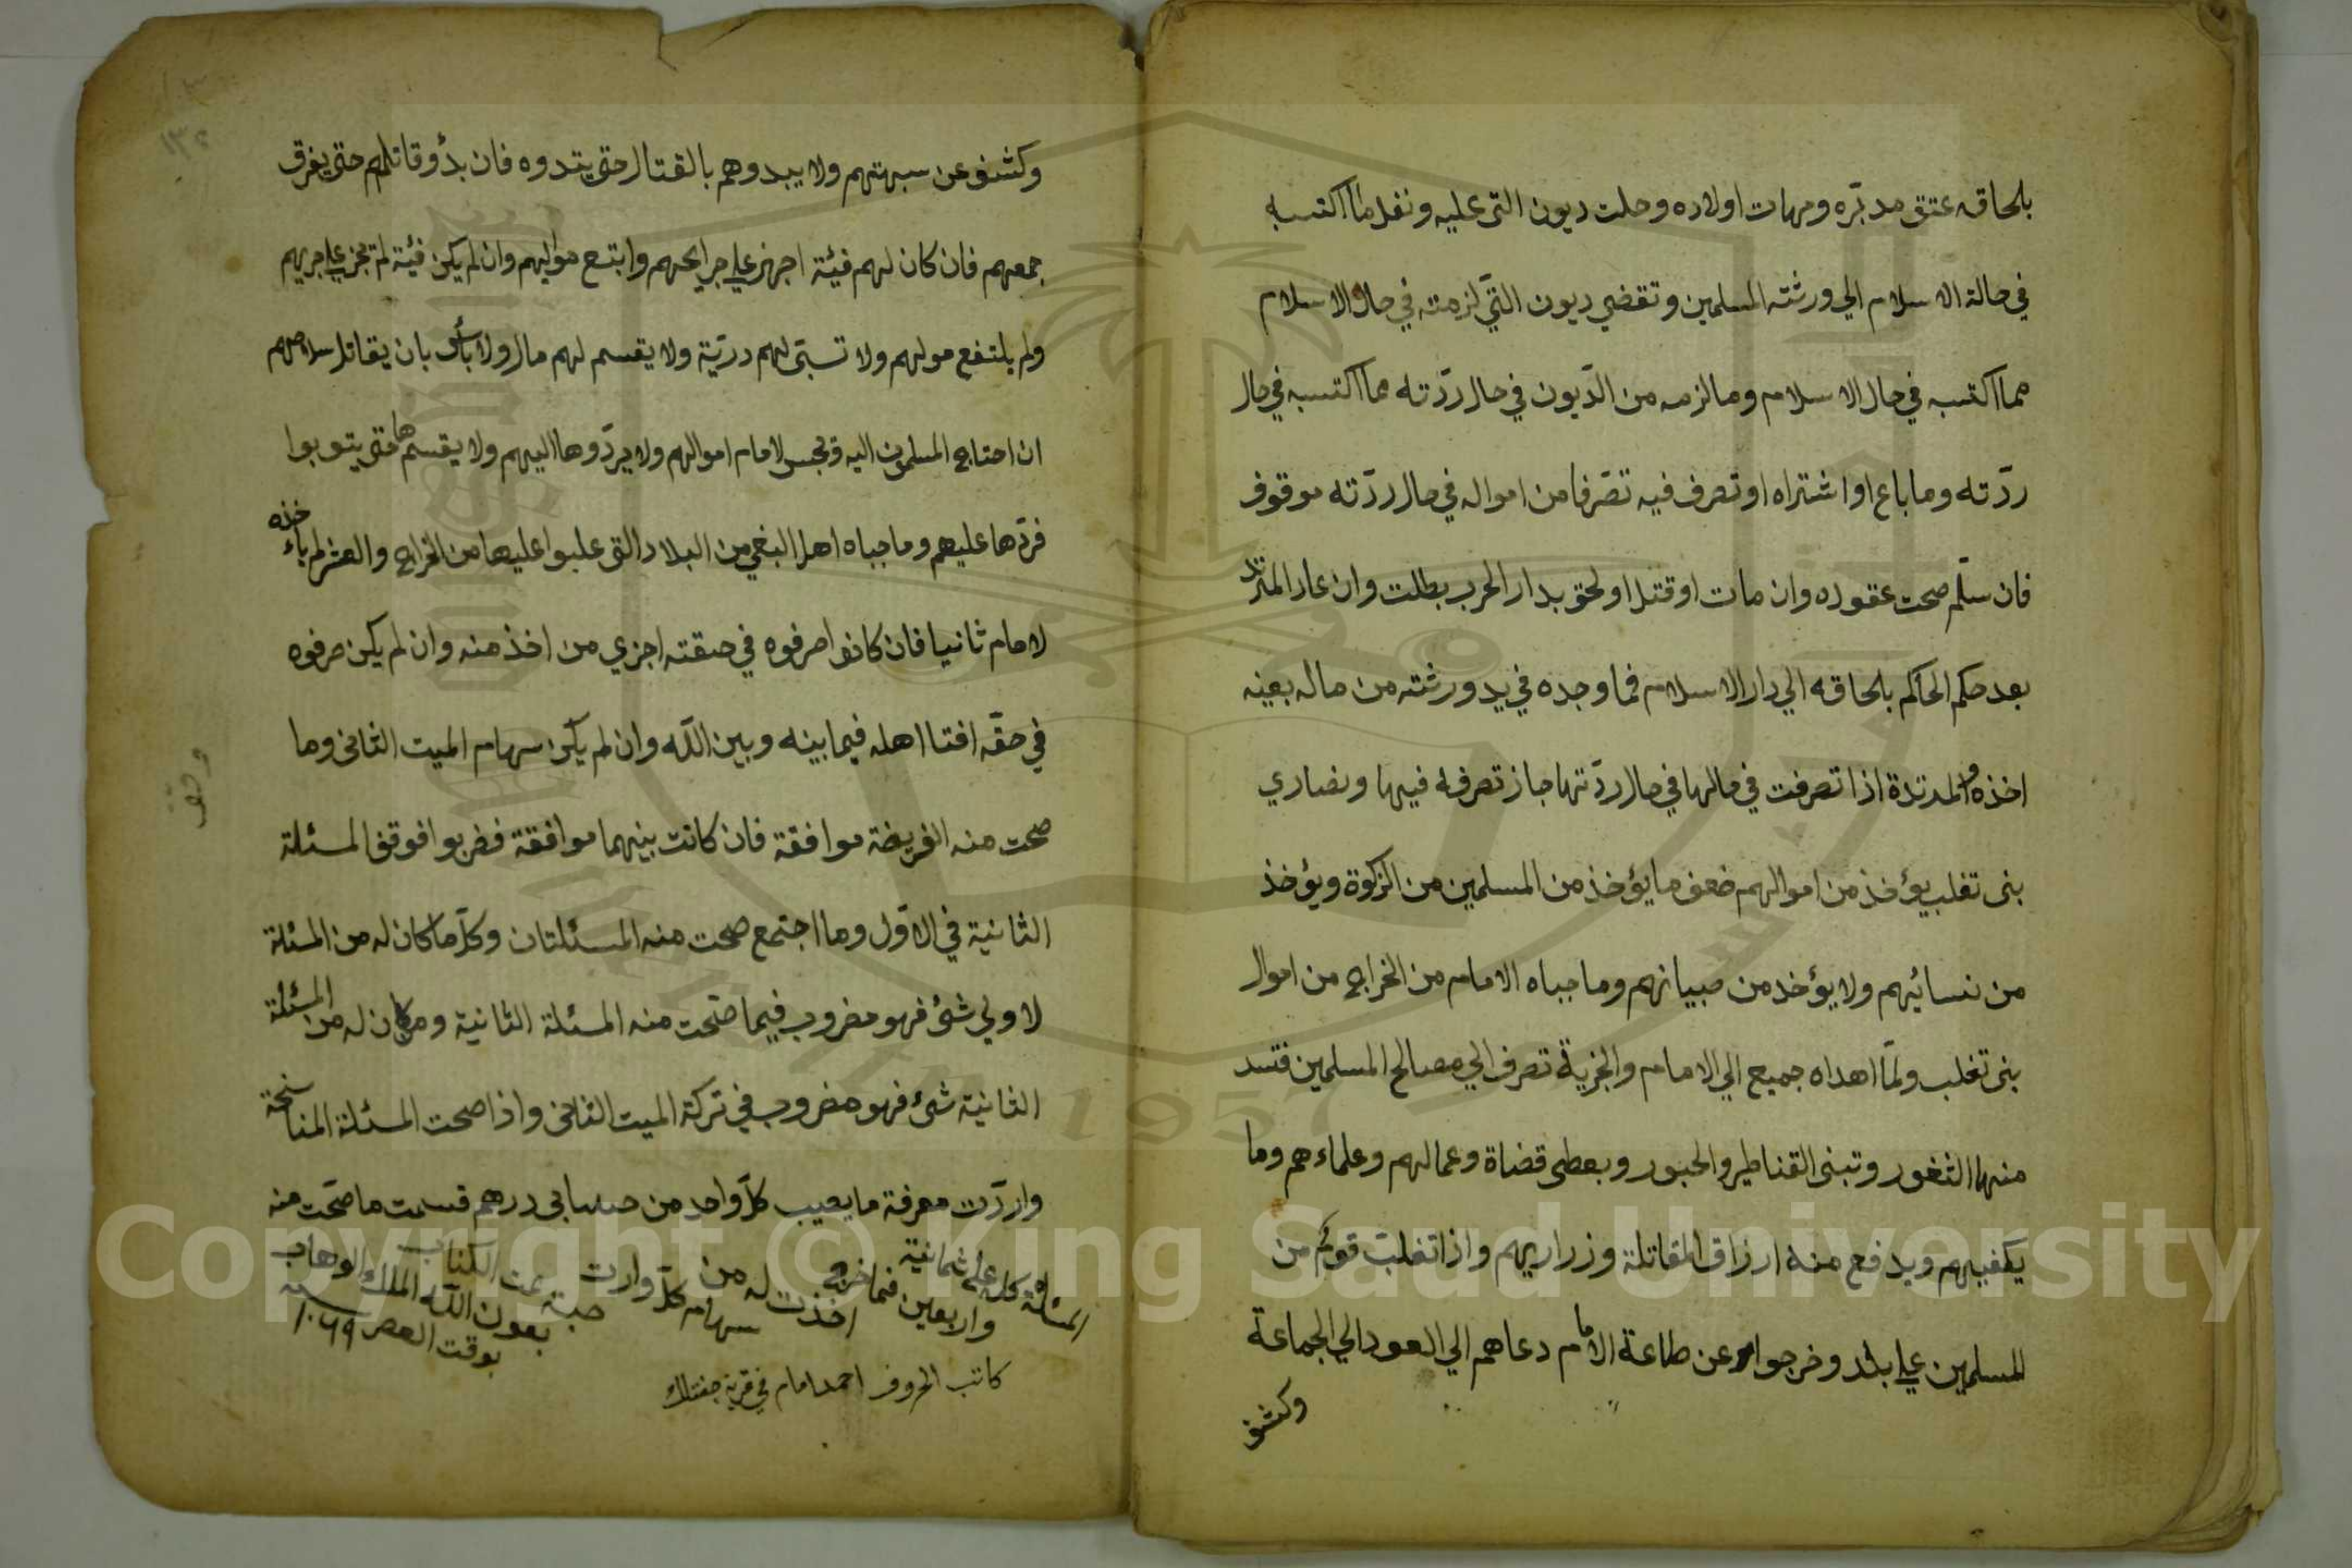 بلحاقه عتق مدبّره ومهات اولاده وحلت ديون التى عليه ونفل ما اكتسبه
في حالة الاسلام الي ورثته المسلمين وتقضي ديون التّي لزمته في حال الاسلام
مما اكتسبه في حال الاسلام وما لزمه من الدّيون في حال ردّته مما اكتسبه في حال
ردّته وما باع او اشتراه او تصرف فيه تصّرفا من امواله في حال ردّته موقوف
فان سلّم صحت عقوده وان مات او قتل او لحق بدار الحرب بطلت وان عار المترتد
بعد حكم الحاكم بلحاقه الي دار الاسلام فما وجده في يد ورثته من ماله بعينه
اخذه والمرتدة اذا تصرفت في مالها في حال ردّتها جاز تصرفه فيها ونصاري
بنى تغلب يؤخذ من اموالهم ضعف ما يؤخذ من المسلمين من الزكوة ويؤخذ
من نسائيهم ولا يؤخذ من صبيانهم وما جباه الامام من الخراج من اموال
بنى تغلب ولمّا اهداه جميع الي الامام والجزية تصرف الي مصالح المسلمين فتسد
منها الثغور وتبنى القناطير والجبور ويعطى قضاة وعمالهم وعلماءهم وما
يكفيهم ويدفع منه ارزاق المقاتلة وزراريهم واذا تغلبت قوم من
المسلمين علي بلد وخرجوا عن طاعة الامام دعاهم الي العود الي الجماعة
وكشف
وكشف عن سبهتهم ولا يبدوهم بالقتال حتى يتدوه فان بدؤ وقاتلهم حتى يفرق
جمعهم فان كان لهم فيئة اجهز علي جرايحهم وابتع مواليهم وان لم يكن فيئة لم تجز علي جريهم
ولم يلتفع موليهم ولا تسبّى لهم درّية ولا يقسم لهم مال ولا بأس بان يقاتل سلاحهم
ان احتاج المسلمون اليه وبحبس لامام اموالهم ولا يردّوها اليهم ولا يقسمها حتى يتوبوا
فردّها عليهم وما جباه اهل البغي من البلاد التى غلبوا عليها من الخراج والعشر لم ياءخذه
لامام ثانيا فان كانوا صرفوه في حقته اجزي من اخذ منه وان لم يكن صرفوه
في حقّه افتا اهله فيما بينه وبين اللّه وان لم يكن سهام الميت الثانى وما
صحت منه الفريضة موافقة فان كانت بينهما موافقة فضربوا فوقف المسئلة
الثانية في الاوّل وما اجتمع صحت منه المسئلتان وكلّ ما كان له من المسئلة
لاولي شئ فهو مضروب فيما صّحت منه المسئلة الثانية ومن كان له من المسئلة
الثانية شئ فهو مضروب في تركة الميت الثانى واذا صحت المسئلة المناسخة
واردّت معرفة ما يصيب كلّ واحد من حسابى درهم قسمت ما صّحت منه
المسئلة كله علي ثمانية واربعين فما خرج اخذت له من سهام كلّ وارت حبته تمت الكتاب
بعون اللّه الملك الوهاب بوقت العصر سنه ١٠٦٩
كاتب الحروف احمد امام في قرية
وقف
١٣٢
Copyright © King Saud University
1957